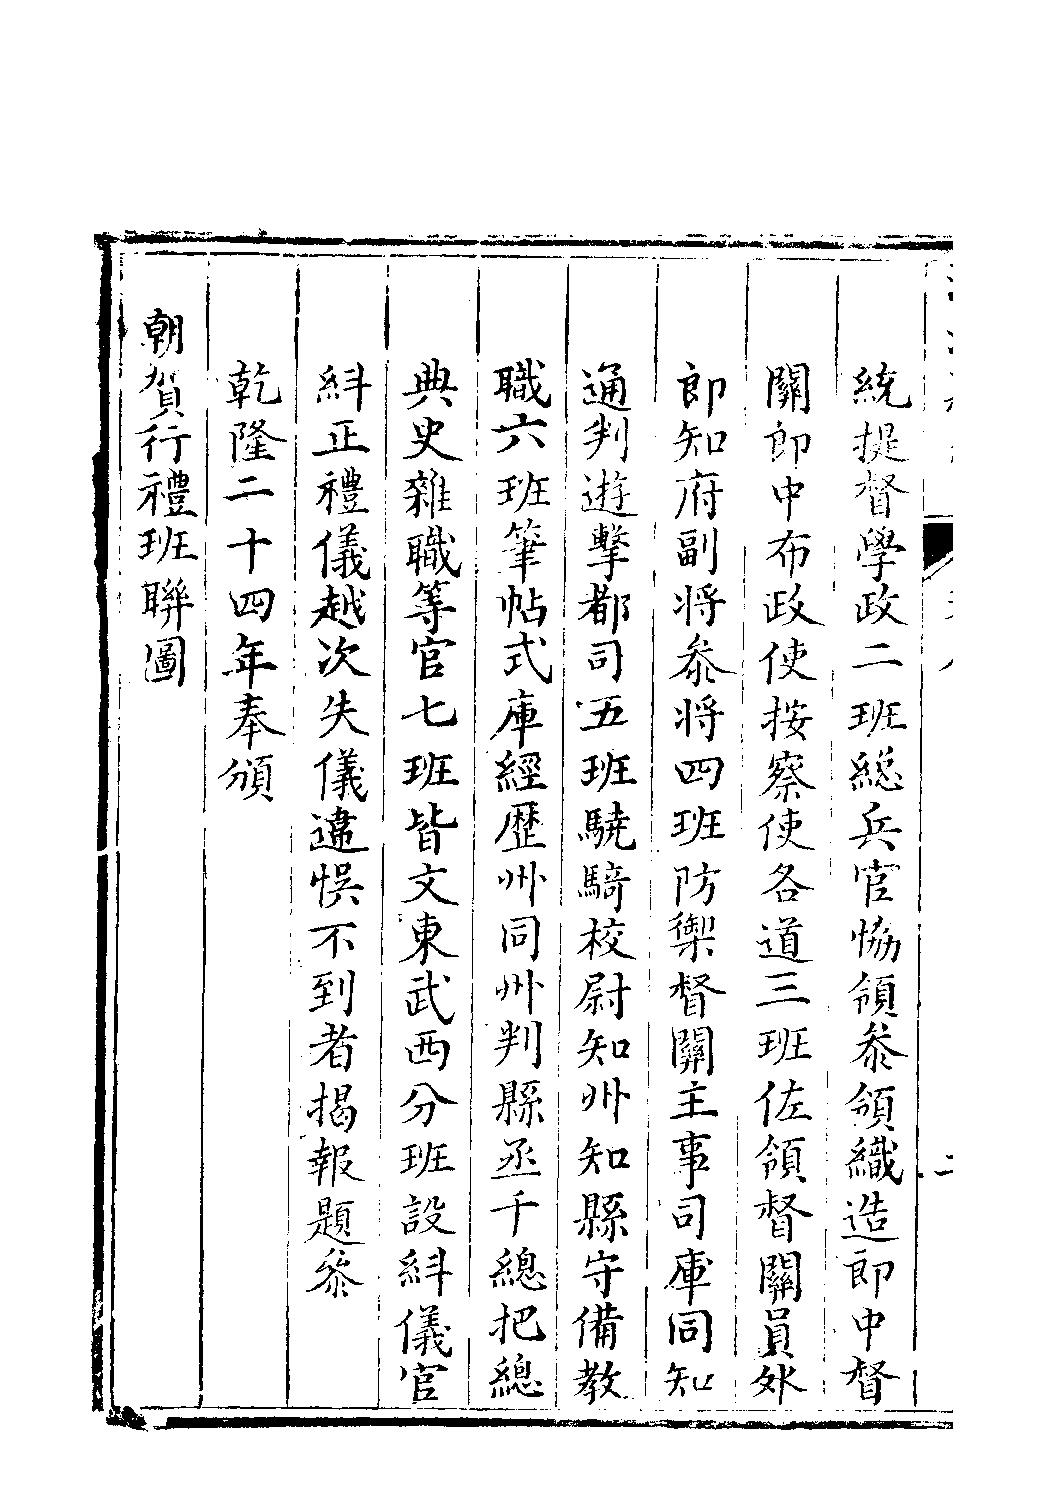 統提督學政二班総兵官恊領叅領織造郎中督
關郎中布政使按察使各道三班佐領督關員外
郎知府副将叅将四班防禦督關主事司庫同知
通判遊擊都司五班驍騎校尉知州知縣守備教
職六班筆帖式庫經歴州同州判縣丞千總把總
典史雜職等官七班皆文東武西分班設糾儀官
糾正禮儀越次失儀違悞不到者揭報題叅
乾隆二十四年奉頒
朝賀行禮班聯圖